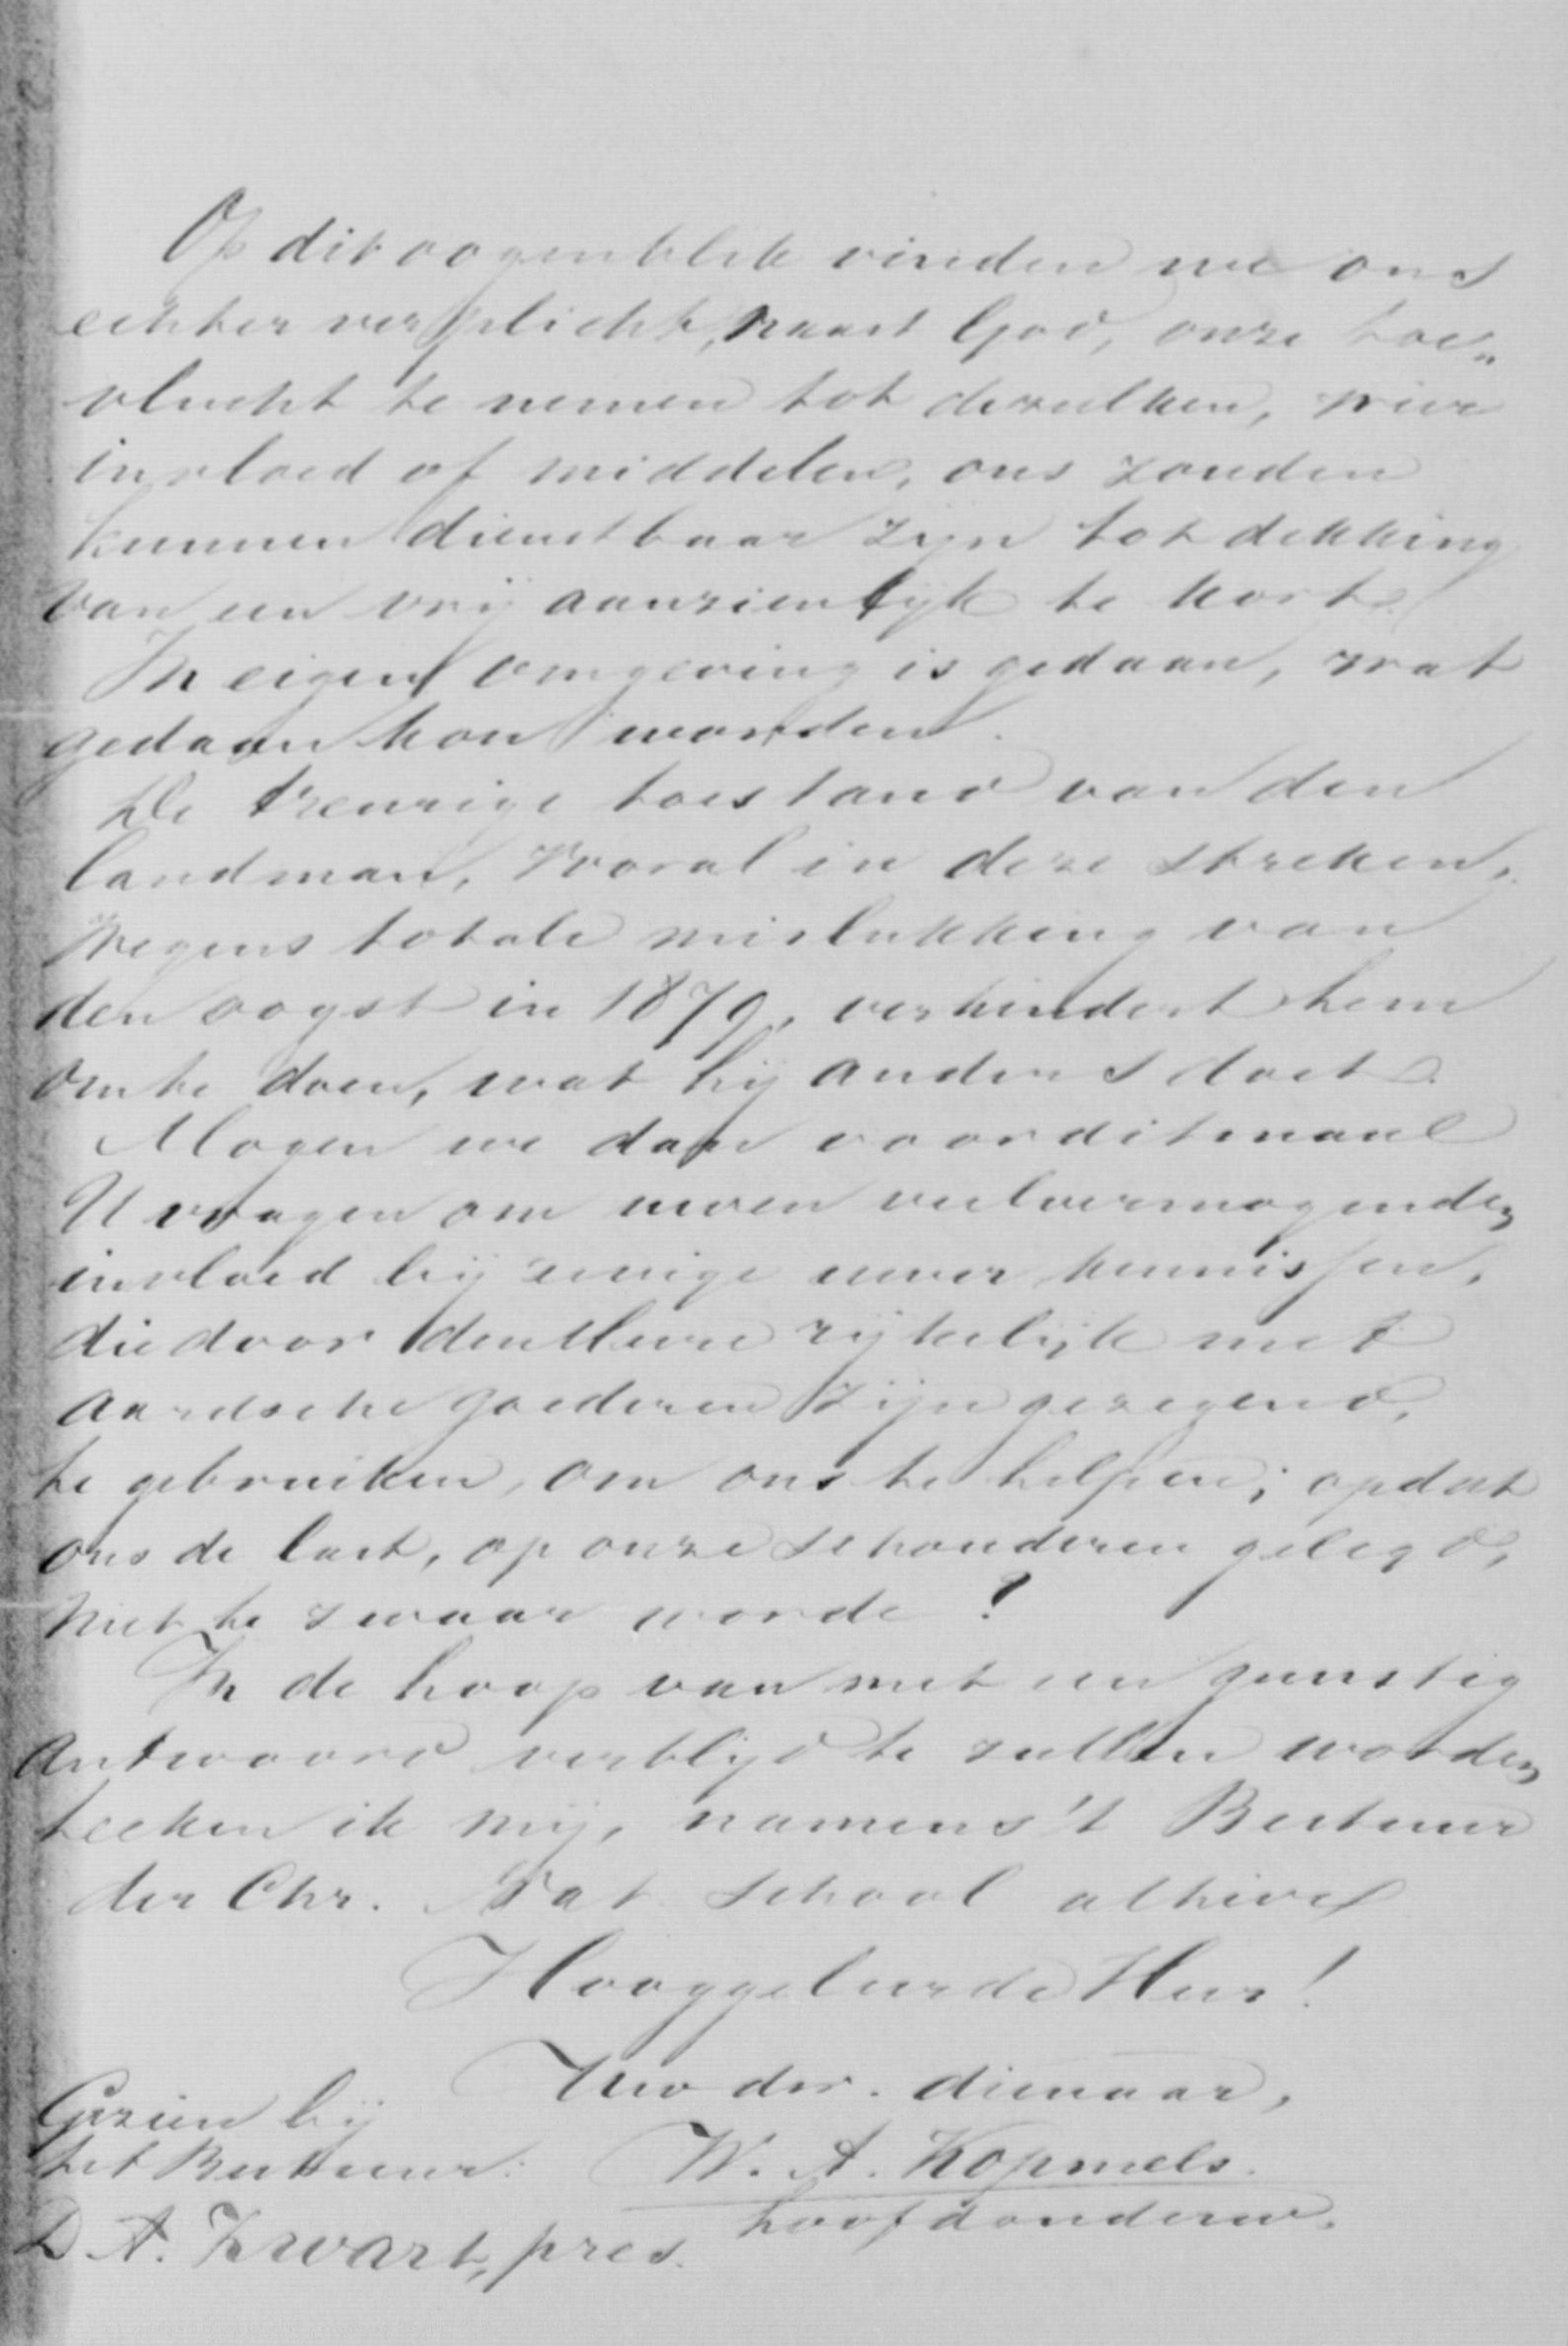 Op dit oogenblik vinden we ons
echter verplicht, naast God, onze toe„
vlucht te nemen tot dezulken, wier
invloed of middelen, ons zouden
kunnen dienstbaar zijn tot dekking
van een vrij aanzienlijk te kort.
In eigen omgeving is gedaan, wat
gedaan kon worden.
De treurige toestand van den
landman, vooral in deze streken,
wegens totale mislukking van
den oogst in 1879, verhindert hem
om te doen, wat hij anders doet.
Mogen we dan voor ditmaal
U vragen om uwen veelvermogenden
invloed bij eenige uwer kennissen,
die door den Heere rijkelijk met
aardsche goederen zijn gezegend,
te gebruiken, om ons te helpen; opdat
ons de last, op onze schouderen gelegd,
niet te zwaar worde?
In de hoop van met een gunstig
antwoord verblijd te zullen worden
teeken ik mij, namens 't Bestuur
der Chr. Nat. School alhier
Hooggeleerde Heer!
Uw dw. dienaar,
Gezien bij
het Bestuur: W. A. Kopmels.
hoofdonderw.
D A. Zwart, pres.